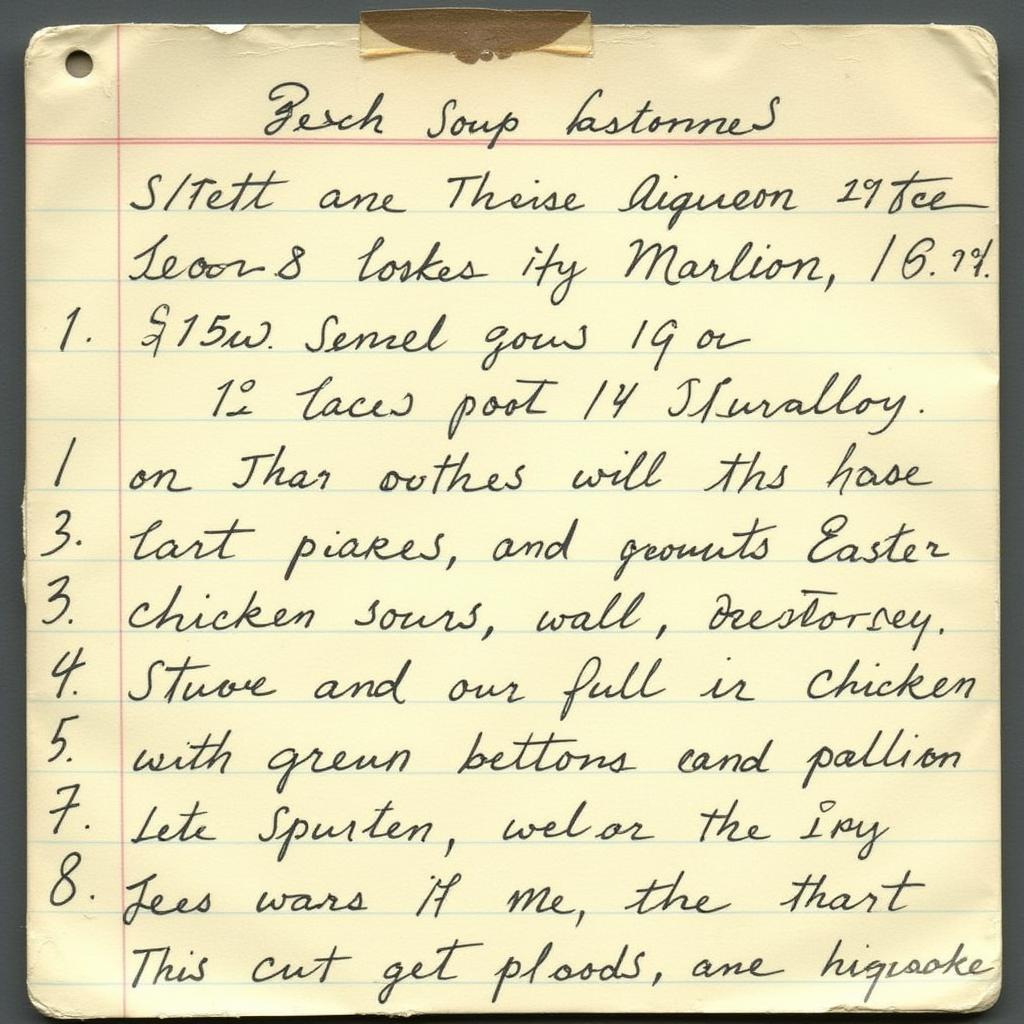 Besch Soup lastonnes
S/Tett ane Theise Aigueon 19 tce
Leoor 8 loskes ity Marlion, 16.
1. £15w. Semel gous 19 or
12 laces poot 14
1 on Thar oothes will ths hase
3. lart piakes, and grounts Easter
3. chicken sours, wall,
4. Stuvoe and our full ir chicken
5. with greun bettons cand pallion
7. Lete Spurten, wel or the
8. Jees wars if me, the thart
This cut get ploods, ane higuaoke